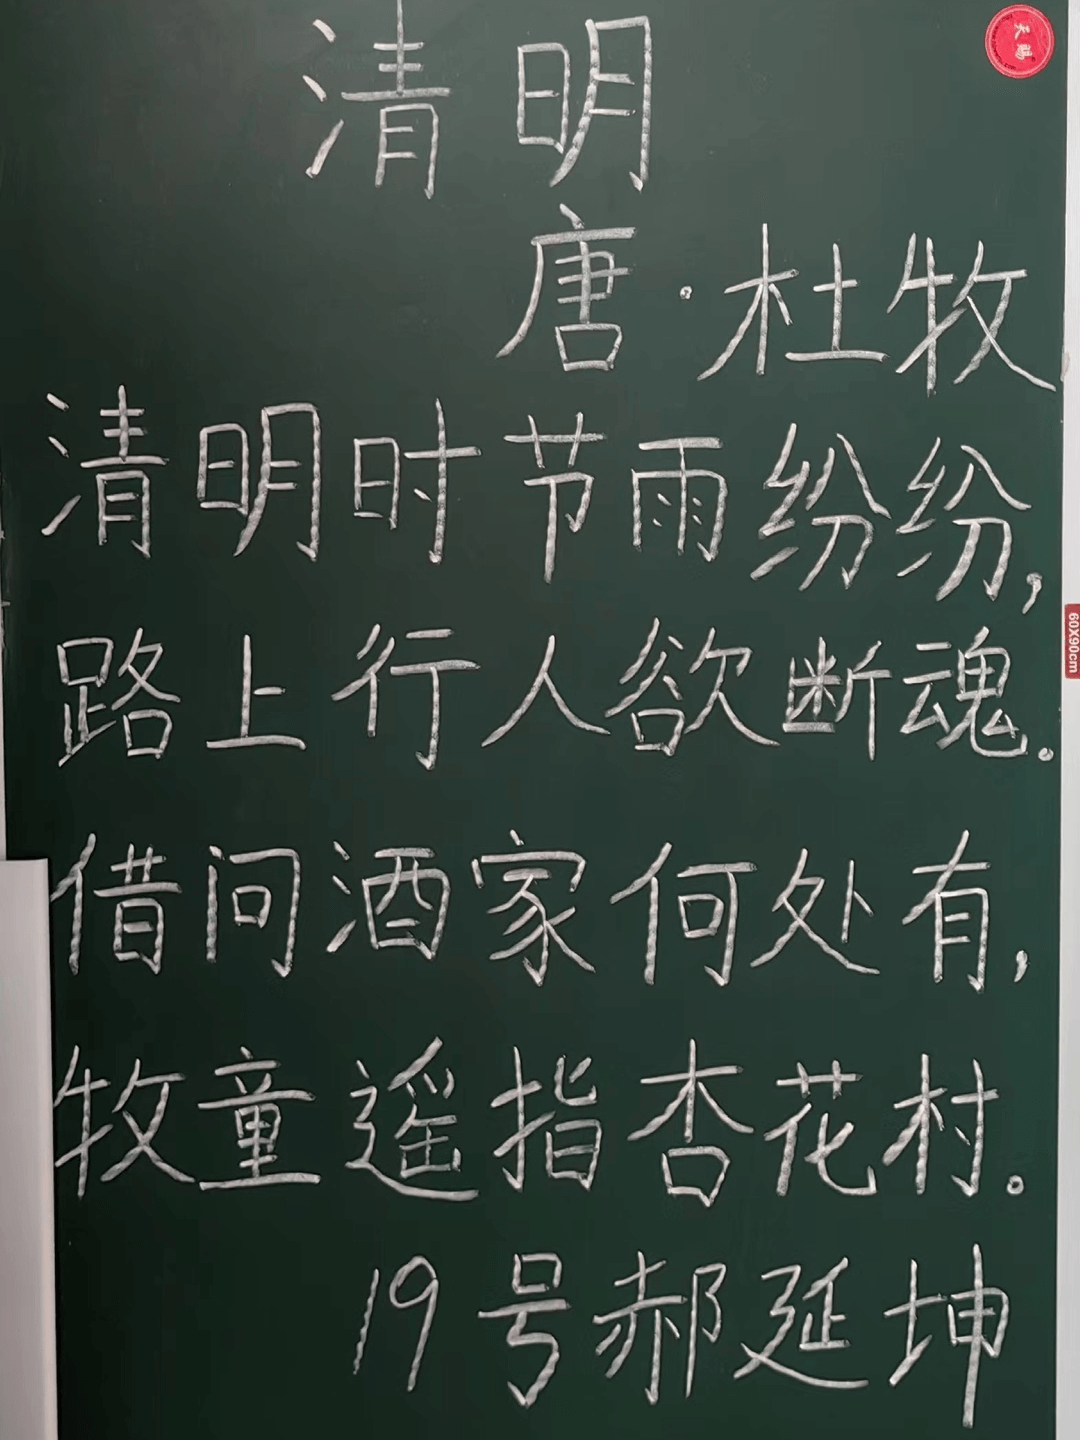 清明
天赐
唐·杜牧
清明时节雨纷纷,
60X90cm
路上行人欲断魂.
借问酒家何处有,
牧童遥指杏花村。
19号郝延坤